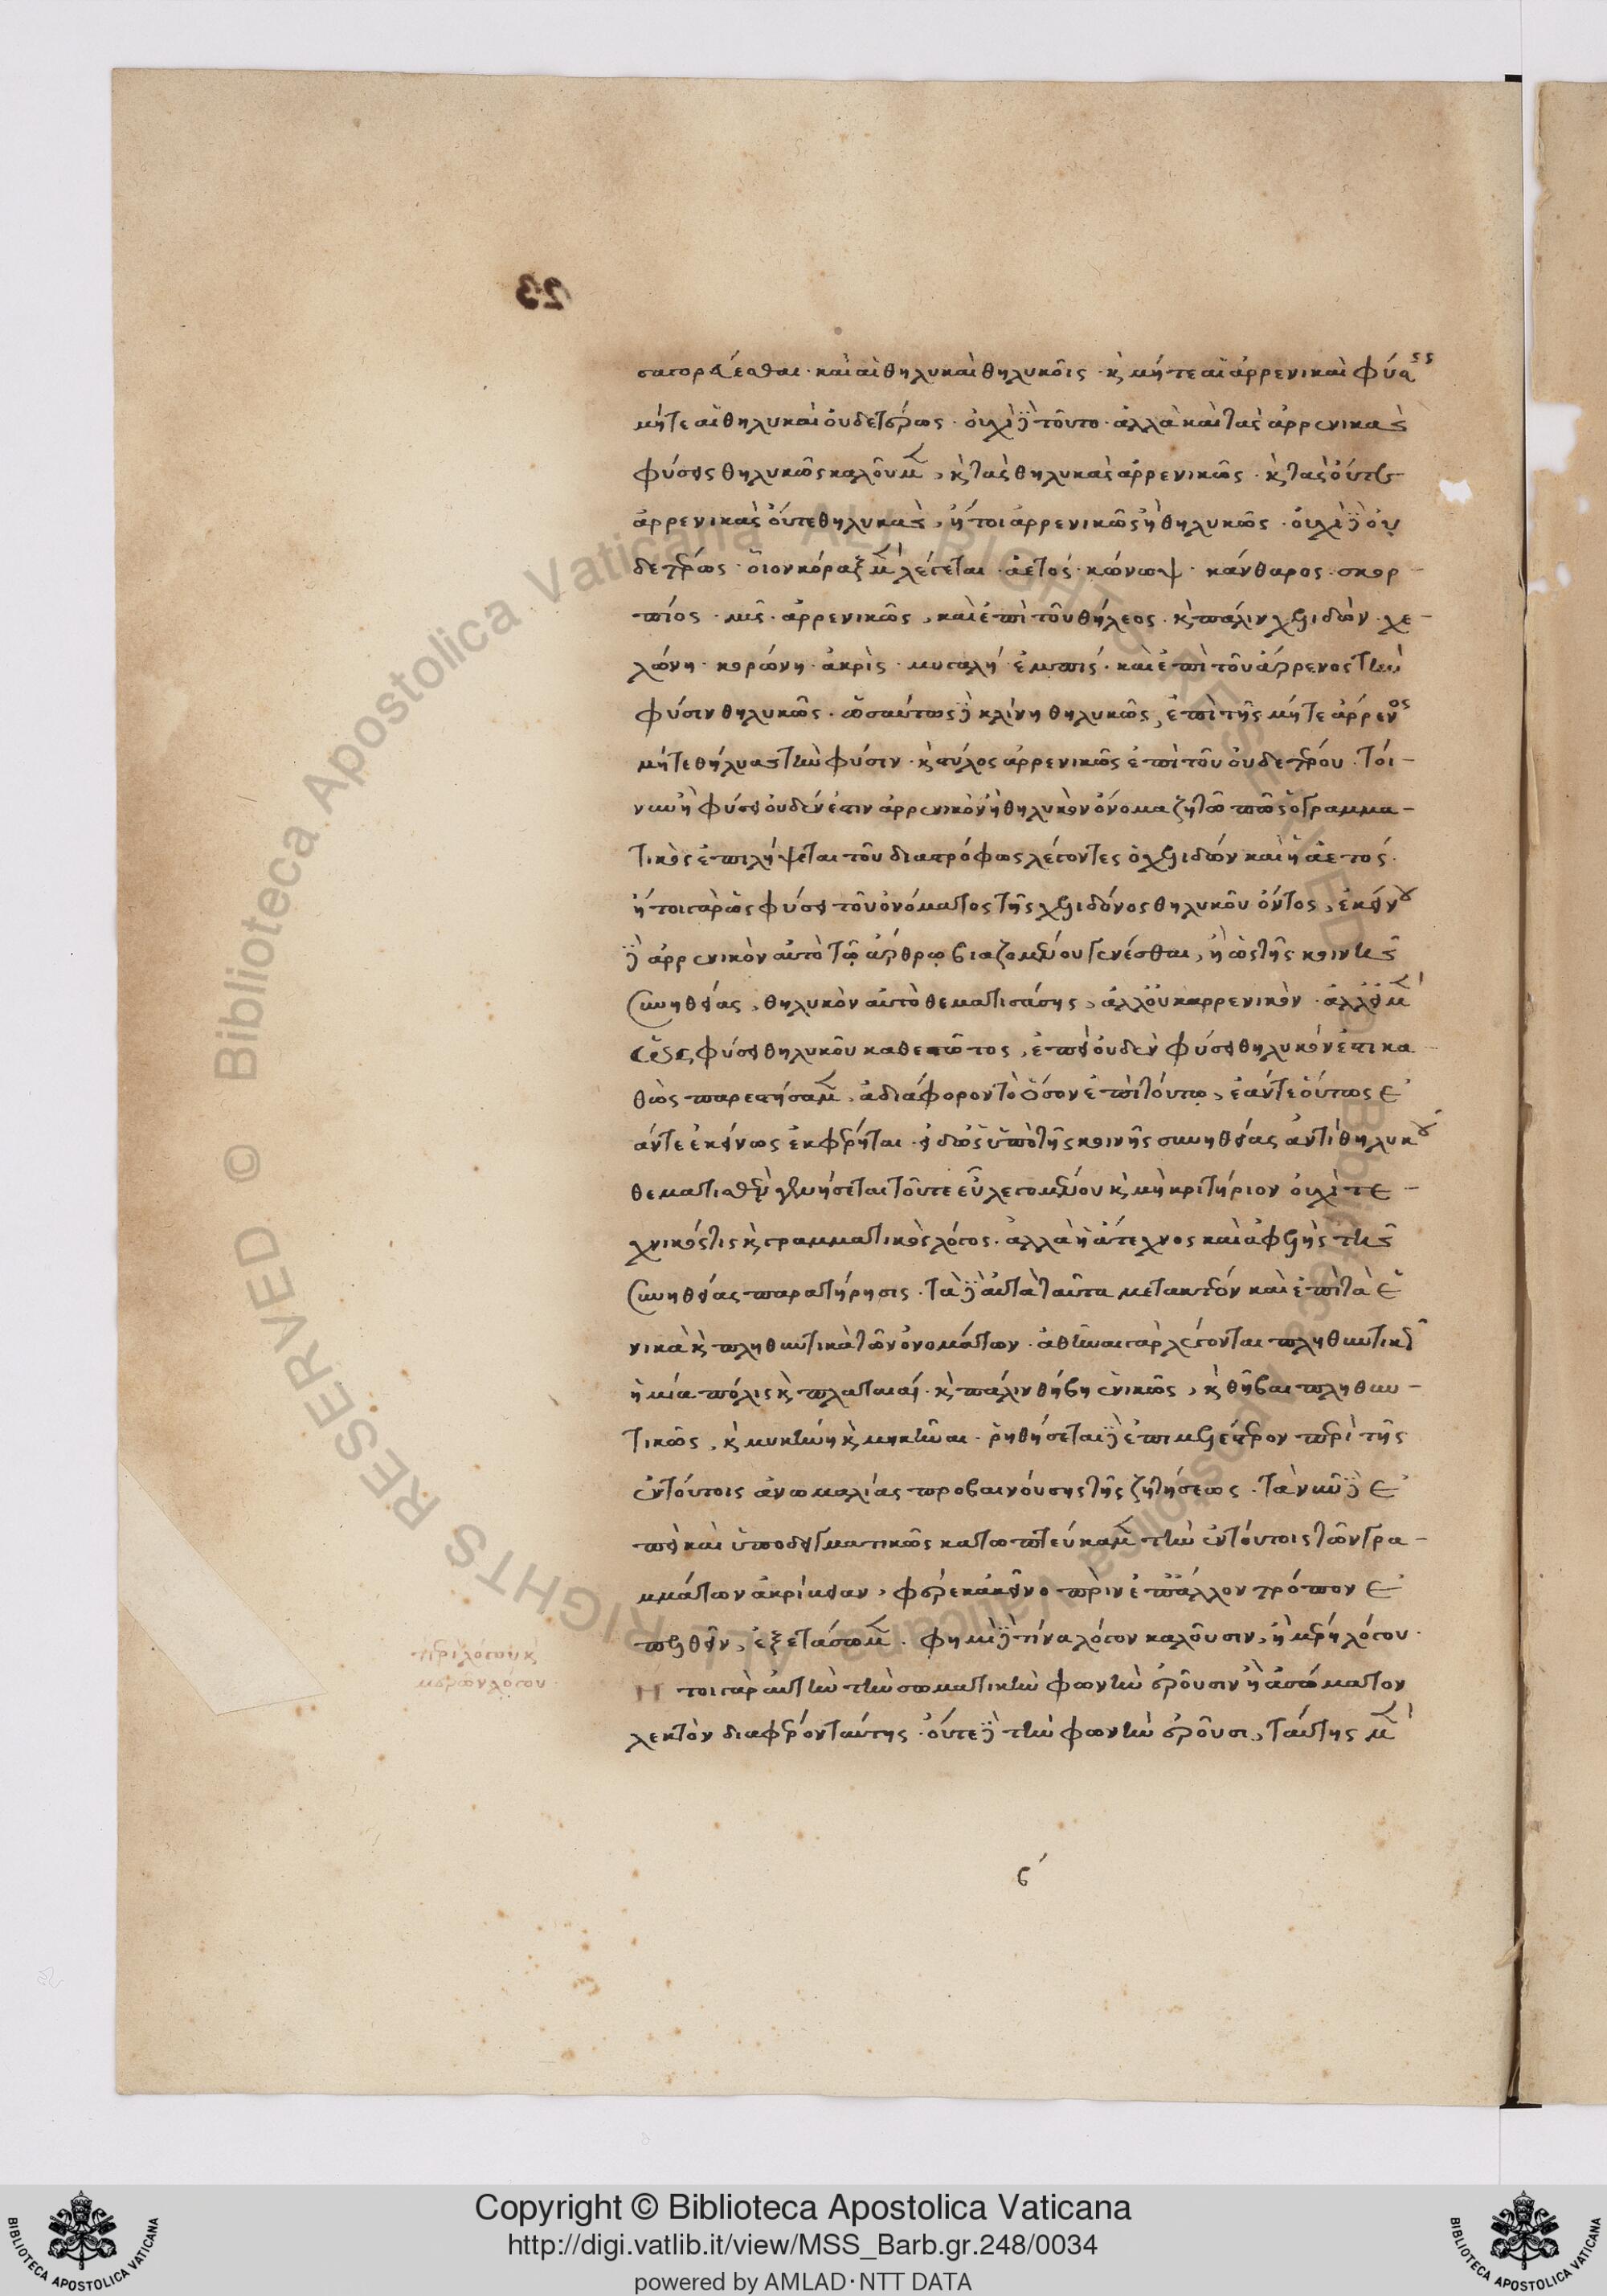 23
σαγορεύεσθαι· καὶ αἱ θηλυκαὶ θηλυκοῖς· κ̀ μήτε αἱ ἀρρενικαὶ φύσεις
μήτε αἱ θηλυκαὶ οὐδετέρως· οὐχὶ δὲ τοῦτο· ἀλλὰ καὶ τὰς ἀρρενικὰς
φύσεις θηλυκῶς καλοῦμεν, κ̀ τὰς θηλυκὰς ἀρρενικῶς· κ̀ τὰς οὔτε
ἀρρενικὰς οὔτε θηλυκὰς, ἤτοι ἀρρενικῶς ἢ θηλυκῶς· οὐχὶ δὲ οὐ
δετέρως· οἷον κόραξ μὲν λέγεται· ἀετός· κώνωψ· κάνθαρος· σκορ-
πίος· μῦς· ἀρρενικῶς, καὶ ἐπὶ τοῦ θήλεος· κ̀ πάλιν χελιδὼν· χε-
λώνη· κορώνη· ἀκρὶς· μυγαλή· ἐμπίς· καὶ ἐπὶ τοῦ ἄρρενος τὴν
φύσιν θηλυκῶς· ὡσαύτως δὲ κλίνη θηλυκῶς, ἐπὶ τῆς μήτε ἄρρενος
μήτε θήλυας τὴν φύσιν· κ̀ στύλος ἀρρενικῶς ἐπὶ τοῦ οὐδετέρου· τοί-
νυν εἰ φύσει οὐδέν ἐστιν ἀρρενικὸν ἢ θηλυκὸν ὄνομα ζητῶ πῶς ὁ γραμμα-
τικὸς ἐπιλήψεται τοῦ διαστρόφως λέγοντος ὁ χελιδών καὶ ἡ ἀετός.
ἤτοι γὰρ ὡς φύσει τοῦ ὀνόματος τῆς χελιδόνος θηλυκοῦ ὄντος, ἐκείνου
δὲ ἀρρενικὸν αὐτὸ τῷ ἄρθρῳ βιαζομένου γενέσθαι, ἢ ὡς τῆς κοινῆς
συνηθείας, θηλυκὸν αὐτὸ θεματισάσης, ἀλλ' οὐκ ἀρρενικὸν· ἀλλ' εἰ μὲν
ὡς φύσει θηλυκοῦ καθεστῶτος, ἐπεὶ οὐδὲν φύσει θηλυκόν ἐστι κα-
θὼς παρεστήσαμεν, ἀδιάφορον τὸ ὅσον ἐπὶ τούτῳ, ἐάντε οὕτως ἐ
άντε ἐκείνως ἐκφέρηται· εἰ δ' ὡς ὑπὸ τῆς κοινῆς συνηθείας ἀντὶ θηλυκοῦ
θεματισθὲν γενήσεται τοῦτε εὖ λεγομένου κ̀ μὴ κριτήριον οὐχὶ τε-
χνικός τις κ̀ γραμματικὸς λόγος· ἀλλὰ ἡ ἄτεχνος καὶ ἀφελὴς τῆς
συνηθείας παρατήρησις· τὰ δὲ αὐτὰ ταῦτα μετακτέον καὶ ἐπὶ τὰ ἑ
νικὰ κ̀ πληθυντικὰ τῶν ὀνομάτων· ἀθῆναι γὰρ λέγονται πληθυντικῶς
ἡ μία πόλις κ̀ πλαταιαί· κ̀ πάλιν θήβη ἑνικῶς, κ̀ θῆβαι πληθυν-
τικῶς, κ̀ μυκήνη κ̀ μυκῆναι· ῥηθήσεται δὲ ἐπιμελέστερον περὶ τῆς
ἐν τούτοις ἀνωμαλίας προβαινούσης τῆς ζητήσεως· τὰ νῦν δὲ ἐ
πεὶ καὶ ὑποδειγματικῶς κατωπτεύκαμεν τὴν ἐν τούτοις τῶν γρα-
μμάτων ἀκρίβειαν, φέρε κἀκεῖνο πρὶν ἐπ' ἄλλον τρόπον ἐ
πελθεῖν, ἐξετάσωμεν· φημὶ δὲ τίνα λόγον καλοῦσιν, ἢ μέρη λόγου.
περὶ λόγου κ̀
μερῶν λόγου
Ητοι γὰρ αὐτὴν τὴν σωματικὴν φωνὴν ἐροῦσιν ἢ ἀσώματον
λεκτὸν διαφέρον ταύτης· οὔτε δὲ τὴν φωνὴν ἐροῦσι, ταύτης μὲν
ϛ´
Copyright © Biblioteca Apostolica Vaticana
http://digi.vatlib.it/view/MSS_Barb.gr.248/0034
powered by AMLAD·NTT DATA
BIBLIOTECA APOSTOLICA VATICANA
BIBLIOTECA APOSTOLICA VATICANA
© Biblioteca Apostolica Vaticana ALL RIGHTS RESERVED © Biblioteca Apostolica Vaticana ALL RIGHTS RESERVED